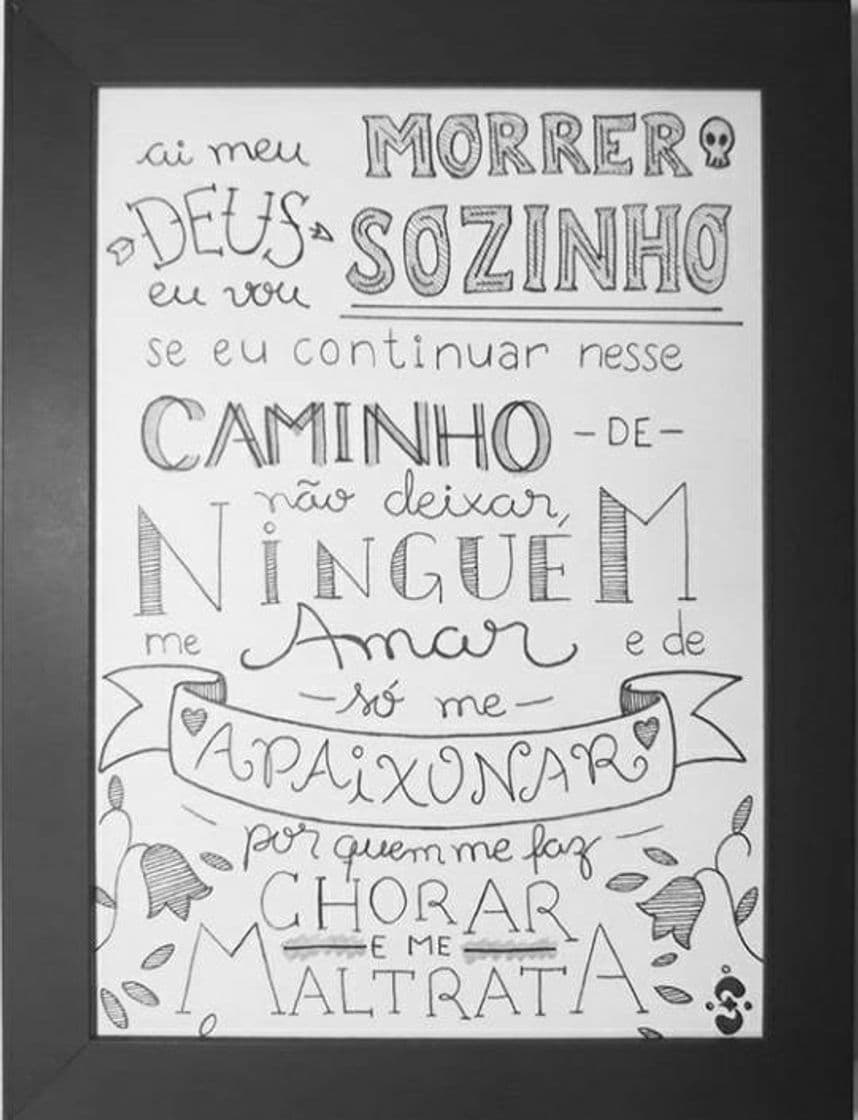 ai meu
DEUS
eu vou
MORRER
SOZINHO
se eu continuar nesse
CAMINHO -DE-
não deixar,
NiNGUÉM
me Amar e de
-só me-
APAiXONAR
por quem me faz
CHORAR
E ME
MALTRATA